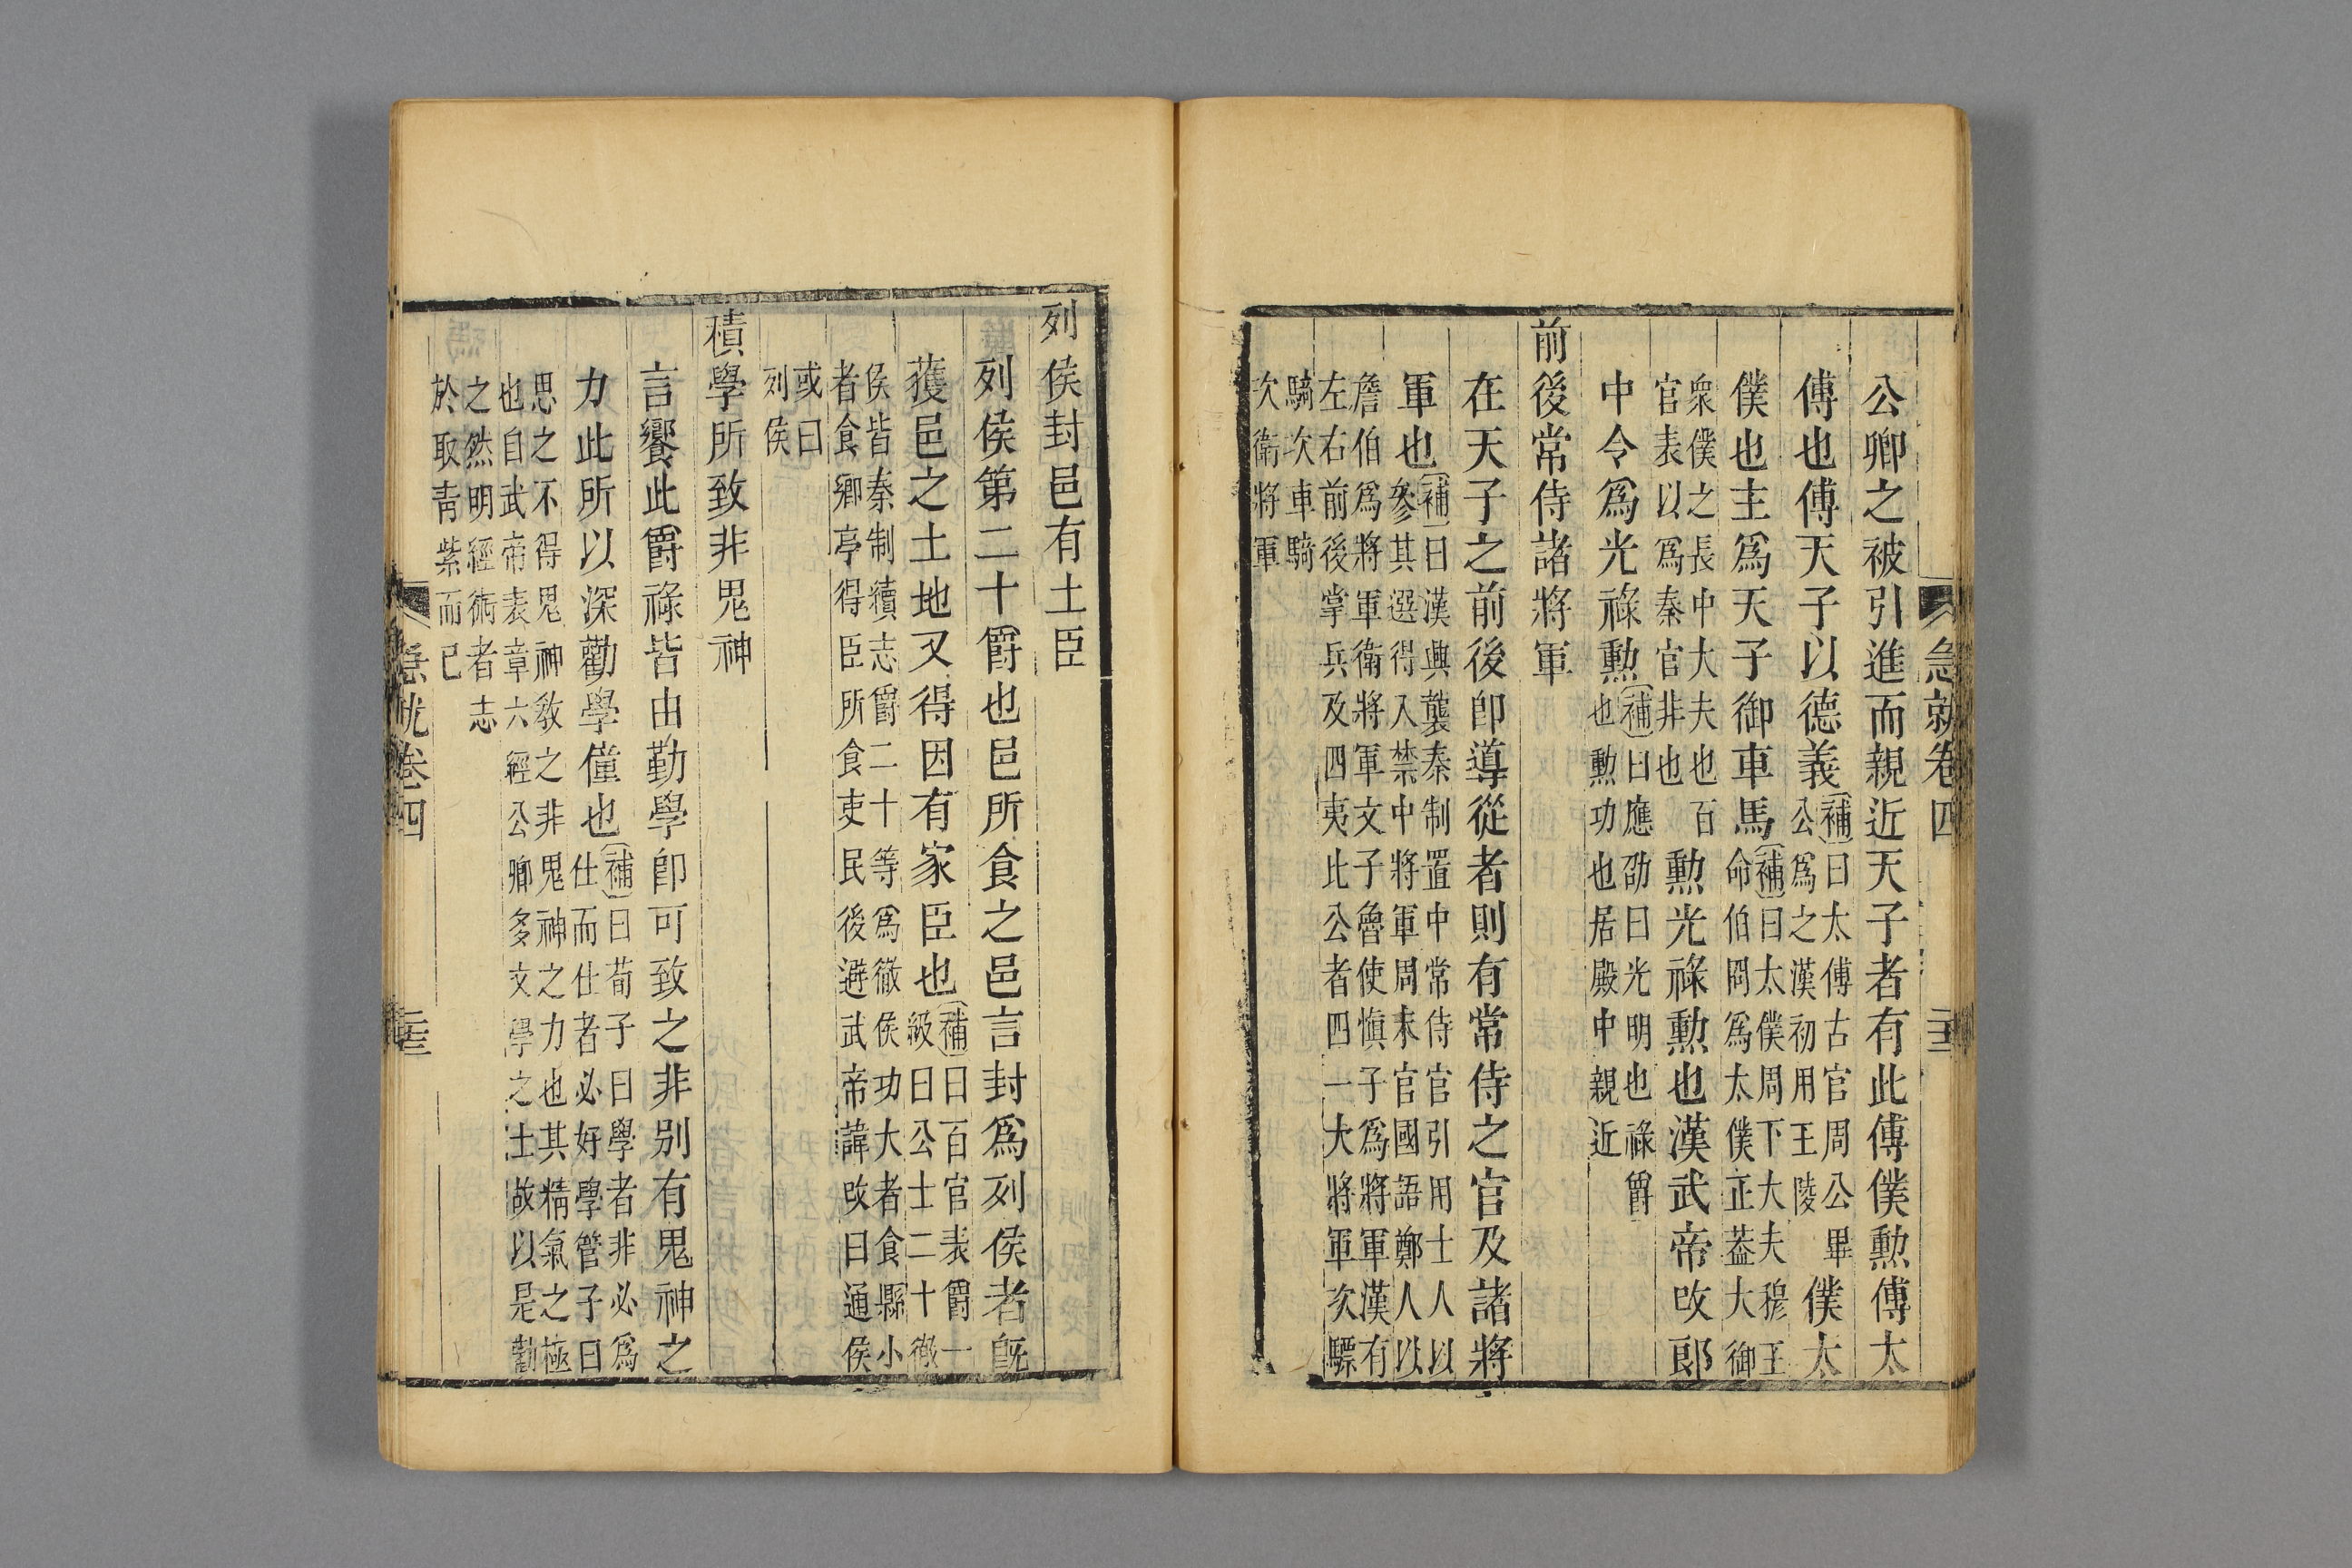 急就卷四
公卿之被引進而親近天子者有此傅僕勲傅太
傅也傅天子以德義補曰太傅古官周公畢公爲之漢初用王陵僕太
僕也主爲天子御車馬補曰太僕周下大夫穆王命伯冏爲太僕正葢大御
衆僕之長中大夫也百官表以爲秦官非也勲光祿勲也漢武帝改郎
中令爲光祿勲補曰應劭曰光明也祿爵也勲功也居殿中親近
前後常侍諸將軍
在天子之前後卽導從者則有常侍之官及諸將
軍也補曰漢興襲秦制置中常侍官引用士人以參其選得入禁中將軍周末官國語鄭人以
詹伯爲將軍衛將軍文子魯使愼子爲將軍漢有左右前後掌兵及四夷比公者四一大將軍次驃
騎次車騎次衛將軍
列侯封邑有土臣
列侯第二十爵也邑所食之邑言封爲列侯者旣
獲邑之土地又得因有家臣也補曰百官表爵一級曰公士二十徹
侯皆秦制續志爵二十等爲徹侯功大者食縣小者食鄉亭得臣所食吏民後避武帝諱改曰通侯
或曰列侯
積學所致非鬼神
言饗此爵祿皆由勤學卽可致之非別有鬼神之
力此所以深勸學僮也補曰荀子曰學者非必爲仕而仕者必好學管子曰
思之不得鬼神敎之非鬼神之力也其精氣之極也自武帝表章六經公卿多文學之士故以是勸
之然明經術者志於取青紫而已
急就卷四
二十三